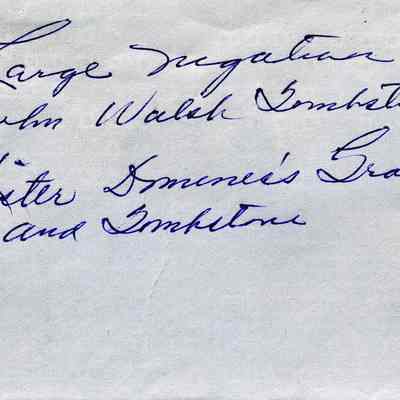 Large Negative
John Walsh Tombst
Sister Domenic's Gra
and Tombstone